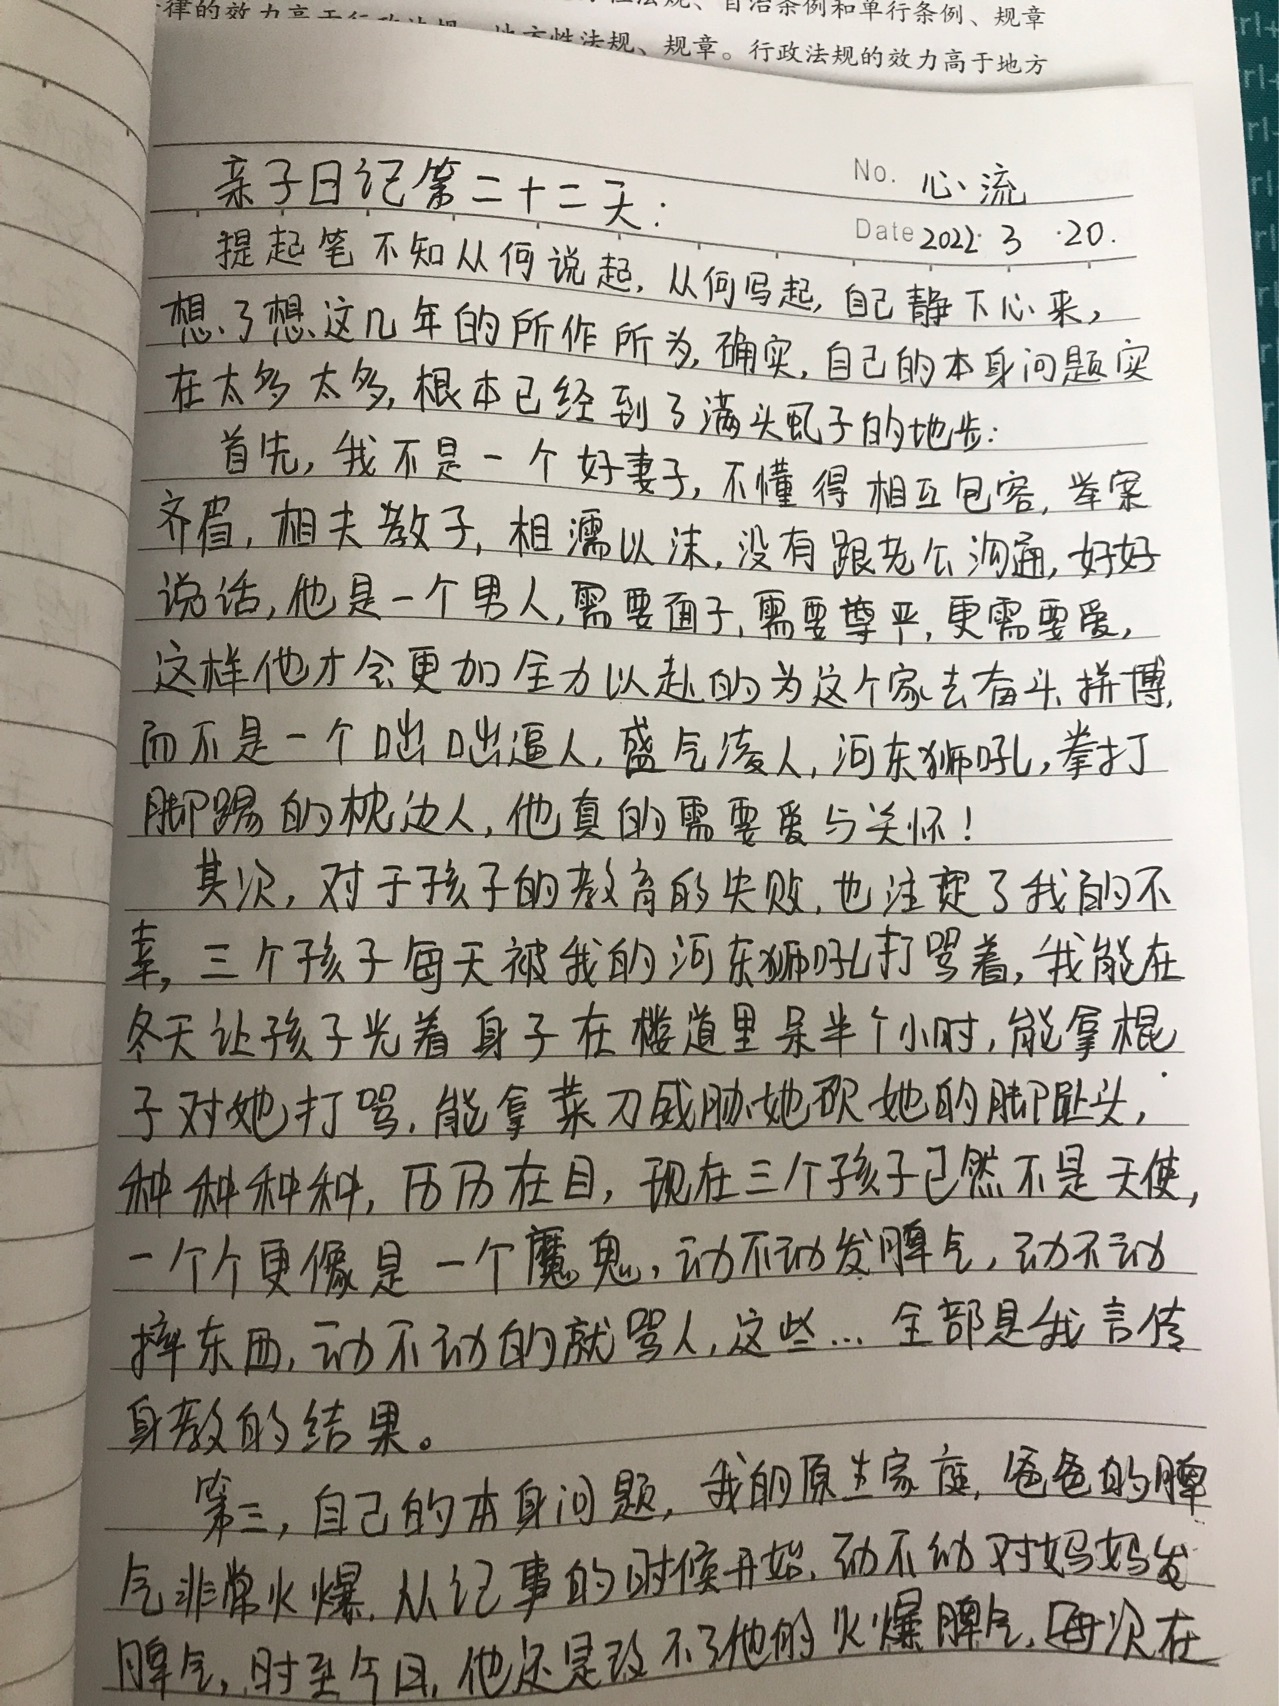 律的效力高于行政法规、地方性法规、规章。行政法规的效力高于地方
自治条例和单行条例、规章
No. 心流
亲子日记第二十二天:
Date 2022 3 ·20.
提起笔不知从何说起,从何写起,自己静下心来,
想了想这几年的所作所为,确实,自己的本身问题实
在太多太多,根本已经到了满头虱子的地步:
首先,我不是一个好妻子,不懂得相互包容,举案
齐眉,相夫教子,相濡以沫,没有跟老公沟通,好好
说话,他是一个男人,需要面子,需要尊严,更需要爱,
这样他才会更加全力以赴的为这个家去奋斗拼博,
而不是一个咄咄逼人,盛气凌人,河东狮吼,拳打
脚踢的枕边人,他真的需要爱与关怀!
其次,对于孩子的教育的失败,也注定了我的不
幸,三个孩子每天被我的河东狮吼打骂着,我能在
冬天让孩子光着身子在楼道里呆半个小时,能拿棍
子对她打骂,能拿菜刀威胁她砍她的脚趾头,
种种种种,历历在目,现在三个孩子已然不是天使,
一个个更像是一个魔鬼,动不动发脾气,动不动
摔东西,动不动的就骂人,这些...全部是我言传
身教的结果。
第三,自己的本身问题,我的原生家庭,爸爸的脾
气非常火爆,从记事的时候开始,动不动对妈妈发
脾气,时至今日,他还是改不了他的火爆脾气,每次在